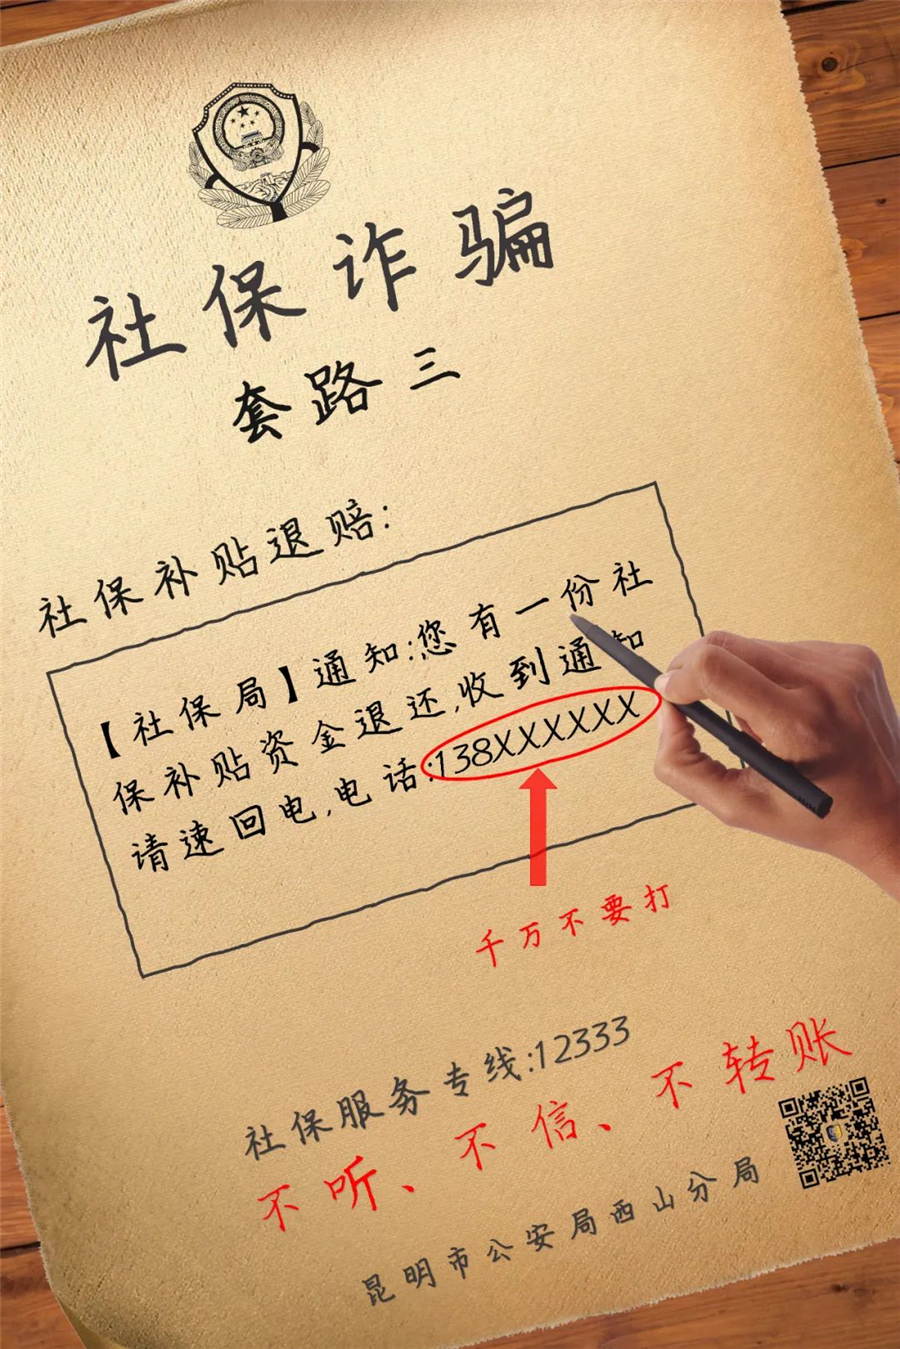 社保诈骗
套路三
社保补贴退赔:
【社保局】通知:您有一份社
保补贴资金退还,收到通知
请速回电,电话:138XXXXXX
千万不要打
社保服务专线:12333
不听、不信、不转账
昆明市公安局西山分局